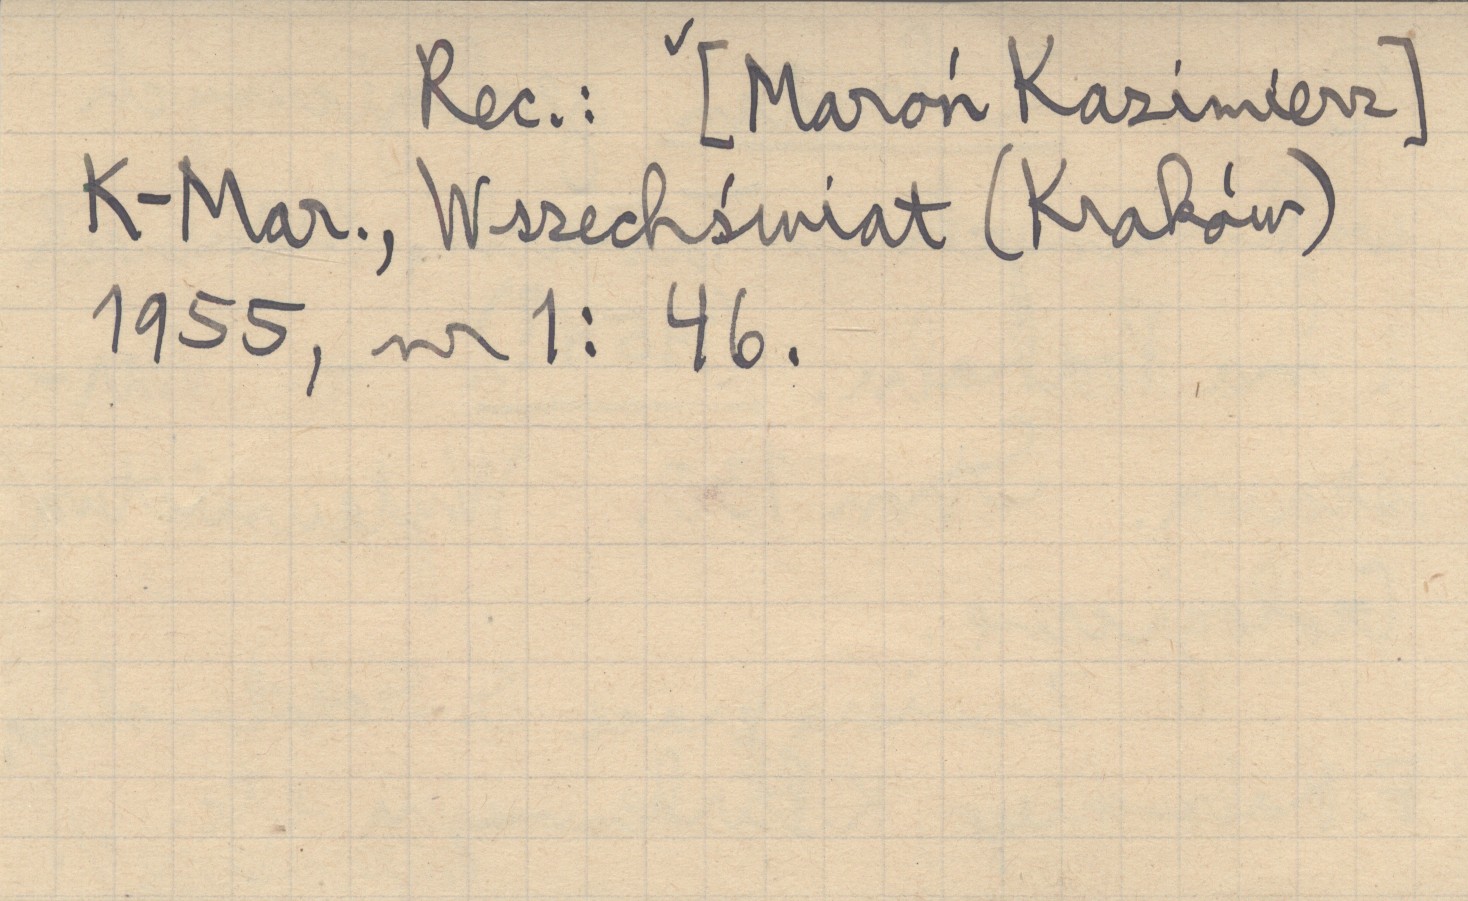 Rec.: ✓[Maroń Kazimierz]
K-Mar., Wszechświat (Kraków)
1955, nr 1: 46.